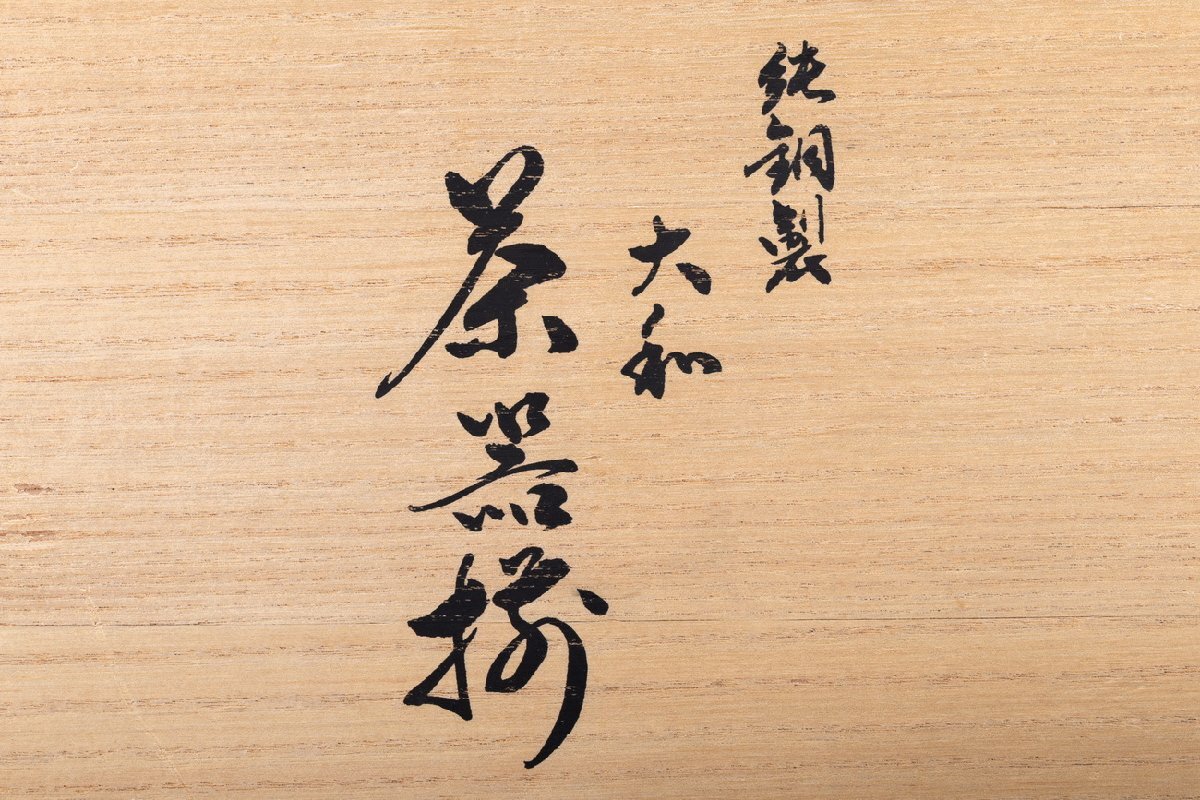 純銅製
大和
茶器揃